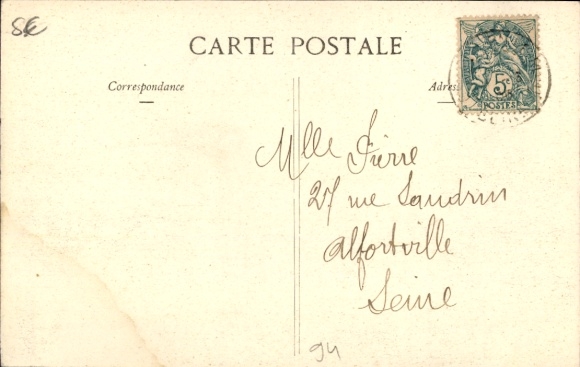 5€
CARTE POSTALE
Correspondance
Adres
5c
POSTES
Mlle Pierre
27 rue Sandrin
Alfortville
Seine
94